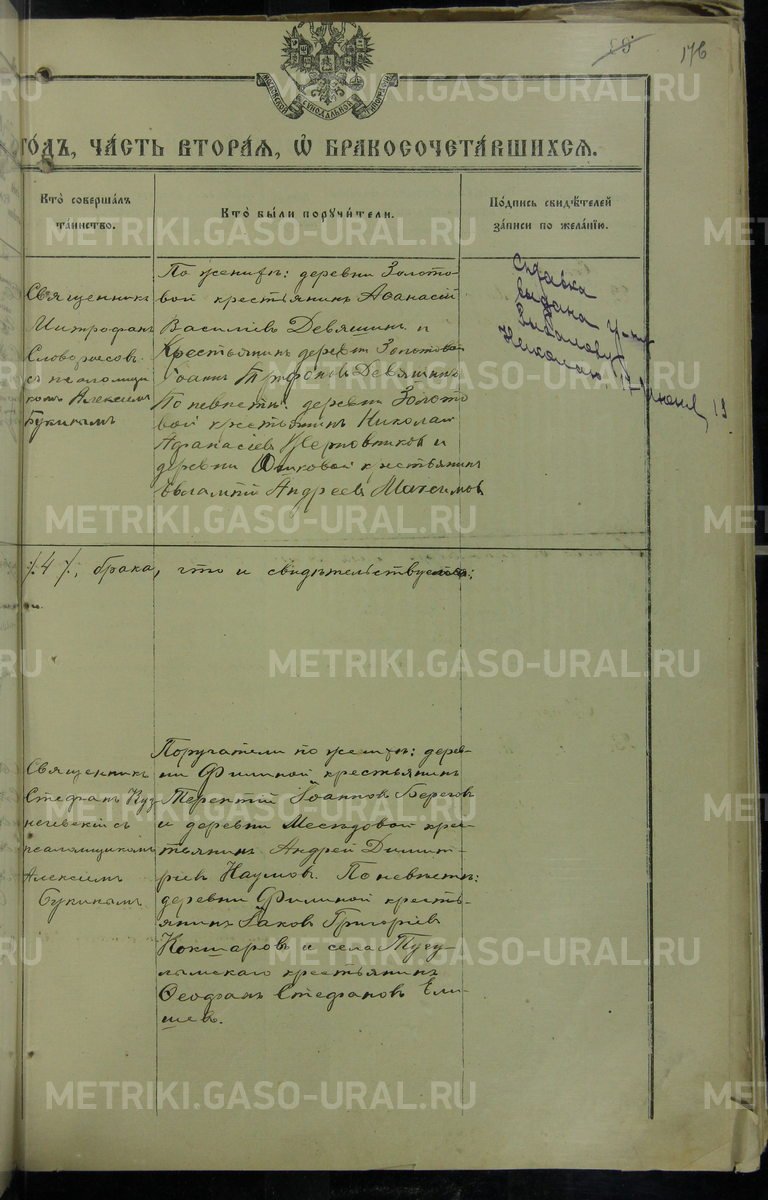 176
годъ, часть вторая, ѡ бракосочетавшихся.
Кто совершалъ таинство.
Кто были поручители.
Подпись свидѣтелей записи по желанію.
Священникъ
Митрофанъ
съ псаломщи
комъ Алексѣем
Букинымъ
По женихѣ: деревни Золото
вой крестьянинъ Аѳанасій
Васильевъ Девяшинъ и
крестьянинъ дерев. Золотовой
Іоаннъ Трифоновъ Девяшинъ
По невѣстѣ: деревни Золото
вой крестьянинъ Николай
Афанасіевъ и
деревни крестьянинъ
Евлампій Андреевъ Максимовъ
Справка
выдана гр-ну
Николаю 17 июня 19
/.4/., брака, что и свидѣтельствуемъ;
Священникъ
Стефанъ Куз
нечевскій съ
псаломщикомъ
Алексѣемъ
Букинымъ
Поручатели по женихѣ: дерев-
ни Филиной крестьянинъ
Терентій Іоанновъ Береговъ
и деревни Месѣдовой крес-
тьянинъ Андрей Димит-
ріевъ Наумовъ. По невѣстѣ:
деревни Филиной кресть-
янинъ Іаковъ Григорьевъ
Кокшаровъ и села Тугу-
лымскаго крестьянинъ
Ѳеофанъ Стефановъ Ели-
шевъ.
METRIKI.GASO-URAL.RU